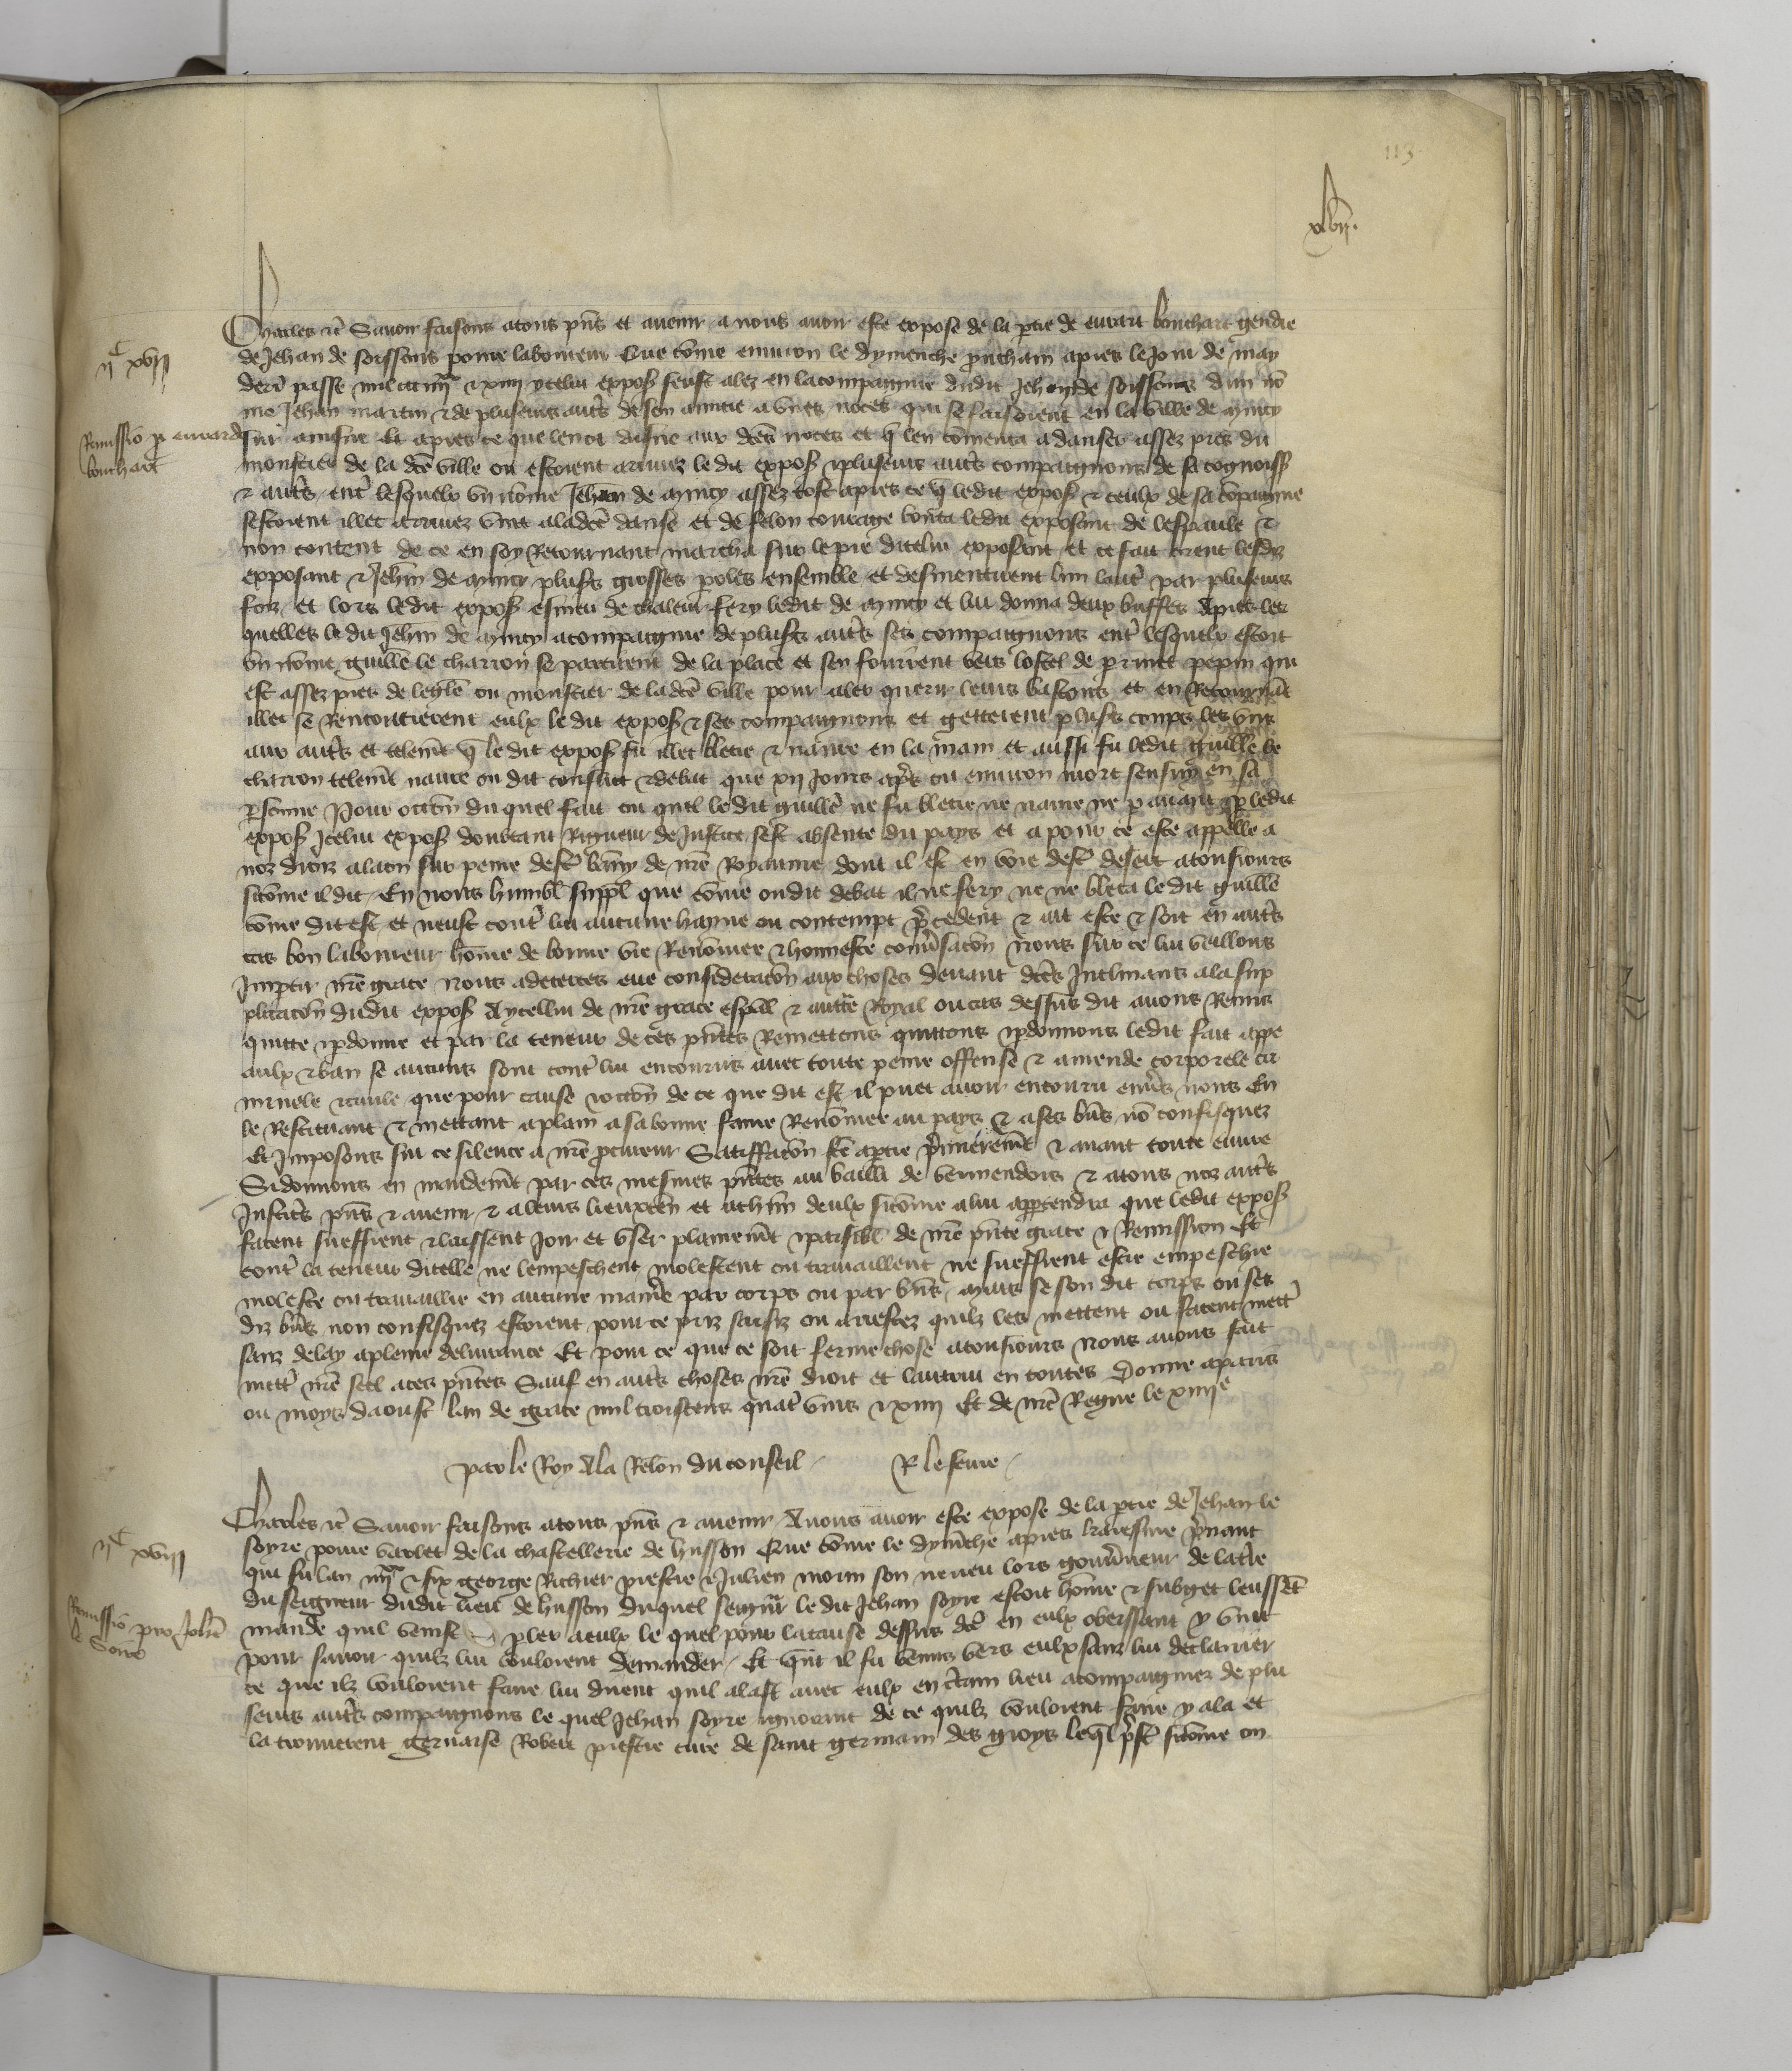 113
xlvii.
Charles etc Savoir faisons a tous pns et avenir a nous avoir este expose de la ptie de evrart bouchart gendre
IIc XVII
de Jehan de soissons povre laboureur Que cõme environ le dymenche prouchain apres le jour de may
derrẽ passe mil ccc iiiixx et xiiii ycelui expos feust alez en la compaignie dudit Jehan de soissons dun nõ
me Jehan martin et de plusieurs autrs de son amitie a unes noces qui se faisoient en la ville de
Remissio p evrardo bouchart
sur aisne Et apres ce que len ot disne aux dces noces et q len cõmenca a danser assez pres du
monstier de la dce ville ou estoient arrivez le dit expos et plusieurs autrs compaignons de sa cognoiss
et autrs entr lesquelx un nõme Jehan de assez tost apres ce q le dit expos et ceulx de sa cõpaignie
sestoient illec arrivez vint a la dce danse et de felon courage bouta le dit exposant de lespaule et
non content de ce en soy Retournant marcha sur le pie dicelui exposant et ce fait orent lesdiz
exposant et Jehan de plusrs grosses poles ensemble et desmentirent lun lautr par plusieurs
foiz et lors le dit expos esmeu de chaleur fery ledit de et lui donna deux buffes Apres les
quelles le dit Jehan de acompaignie de plusrs autrs ses compaignons entr lesquelx estoit
un nõme guille le charron se partirent de la place et sen fouirent vers lostel de perrinet pepin qui
est assez pres de leglẽ ou monstier de la dce ville pour aler querir leurs bastons et en Retournãt
illec se Rencontrerent eulx le dit expos et ses compaignons et getterent plusrs coups les uns
aux autrs et telemt q le dit expos fu illec blecie et navre en la main et aussi fu ledit guille le
charron telemt navre ou dit conflict et debat que xii jours aps ou environ mort sensuy en sa
psonne Pour occõn du quel fait ou quel ledit guille ne fu blecie ne navre ne p avant p ledit
expos Icelui expos doubtant Rigueur de Justice sest absente du pays et a pour ce este appelle a
noz droiz a laon sur peine destr banny de nre Royaume dont il est en voie destr desert a tousjours
sicõme il dit En nous humbl suppl que cõme ou dit debat il ne fery ne ne bleca le dit guille
cõme dit est et neust contr lui aucune hayne ou contempt precedent et ait este et soit en autrs
cas bon laboureur hõme de bonne vie Renõmee et honneste convsacõn nous sur ce lui veillons
Impartir nre grace nous adecertes eue consideracõn aux choses devant dces Inclinans a la sup
plicacõn dudit expos A ycellui de nre grace espal et auctre Royal ou cas dessus dit avons Remis
quitte et pdonne et par la teneur de ces pntes Remettons quittons et pdonnons ledit fait appe
aulx et ban se aucuns sont contr lui encourus avec toute peine offense et amende corporele cri
minele et civile que pour cause et occõn de ce que dit est il puet avoir encouru envrs nous En
le Restituant et mettant a plain a sa bonne fame Renõmee au pays et a ses bns nõ confisquez
Et Imposons sur ce silence a nre procureur Satiffacõn fce a ptie pmieremt et avant toute euvre
Si donnons en mandemt par ces mesmes pntes au bailli de vermendois et a tous noz autrs
Justicrs pns et avenir et a leurs lieuxten et a chm deulx sicõme a lui apptendra que ledit expos
facent sueffrent et laissent joir et user plainemt et paisibl de nre pnte grace et Remission Et
contr la teneur dicelle ne lempeschent molestent ou travaillent ne sueffrent estre empeschie
moleste ou travaillie en aucune maniere par corps ou par bns ainz se son dit corps ou ses
diz bns non confisquez estoient pour ce priz saisiz ou arrestez quilz les mettent ou facent mettr
sanz delay a pleine delivrance Et pour ce que ce soit ferme chose a tousjours nous avons fait
mettr nre seel a ces pntes Sauf en autrs choses nre droit et lautrui en toutes Donne a paris
ou moys daoust lan de grace mil trois cens quatr vins et xiiii Et de nre Regne le xiiiie
par le Roy A la Relõn du conseil R. le fevre
Charles etc Savoir faisons a tous pns et avenir A nous avoir este expose de la ptie de Jehan le
IIc XVIII
soyre povre varlet de la chastellerie de husson Que cõme le dymenche apres karesme prenant
qui fu lan iiiixx et six george Richier prestre et Julien morin son neveu lors gouvneur de la tre
du seigneur dudit lieu de husson duquel seignr le dit Jehan soyre estoit hõme et subget leussent
Remissio pro Johe le Soire
mande quil venist pler a eulx le quel pour la cause dessus dce en eulx obeissant y vint
pour savoir quilz lui vouloient demander Et qnt il fu venus vers eulx sanz lui declairier
ce que ilz vouloient faire lui dirent quil alast avec eulx en ctain lieu acompaignez de plu
seurs autrs compaignons le quel Jehan soyre ignorant de ce quilz vouloient faire y ala et
la trouverent gervaise Robert prestre cure de saint germain des groys leql pstr sicõme on